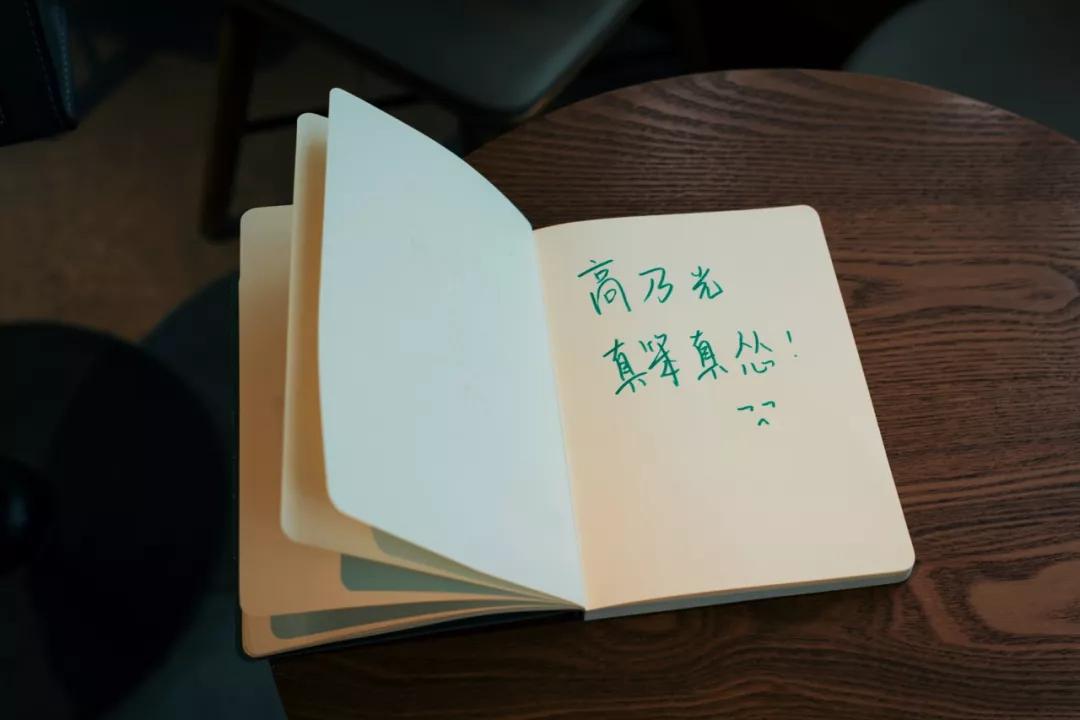 高乃光
真笨真怂！